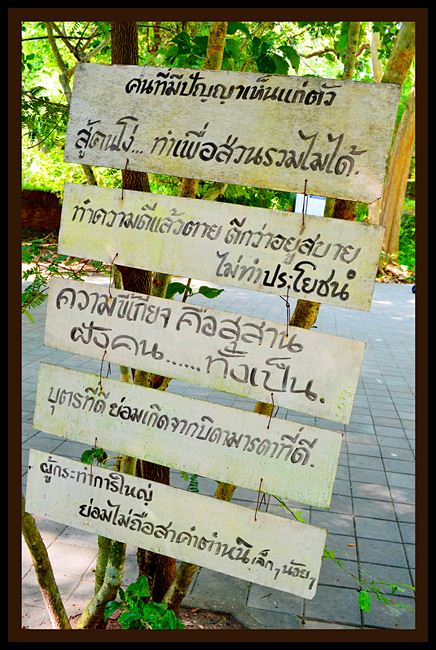 คนที่มีปัญญาเห็นแก่ตัว
สู้คนโง่... ทำเพื่อส่วนรวมไม่ได้.
ทำความดีแล้วตาย ดีกว่าอยู่สบาย
ไม่ทำประโยชน์
ความขี้เกียจ คือสุสาน
ฝังคน....... ทั้งเป็น.
บุตรที่ดี ย่อมเกิดจากบิดามารดาที่ดี.
ผู้กระทำการใหญ่
ย่อมไม่ถือสาคำตำหนิเล็กๆน้อยๆ